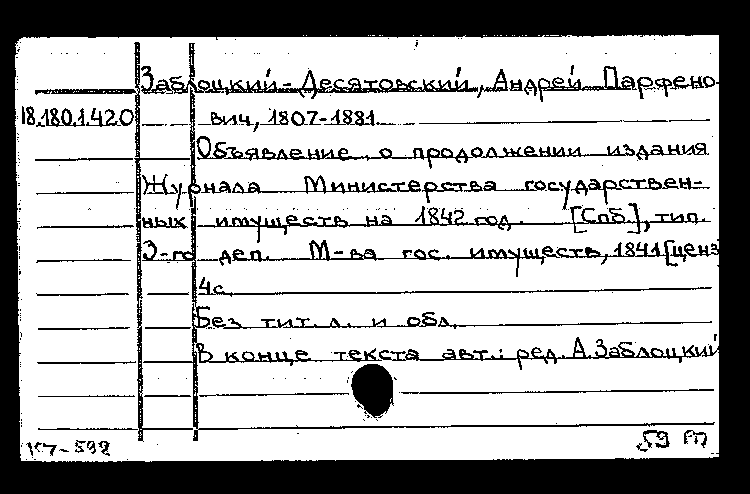 Заблоцкий-Десятовский, Андрей Парфено-
18.180.1.420 вич, 1807-1881.
Объявление о продолжении издания
Журнала Министерства государствен-
ных имуществ на 1842 год. [Спб.], тип.
3-го деп. М-ва гос. имуществ, 1841 [ценз
4с.
Без тит. л. и обл.
В конце текста авт.: ред. А. Заблоцкий
59